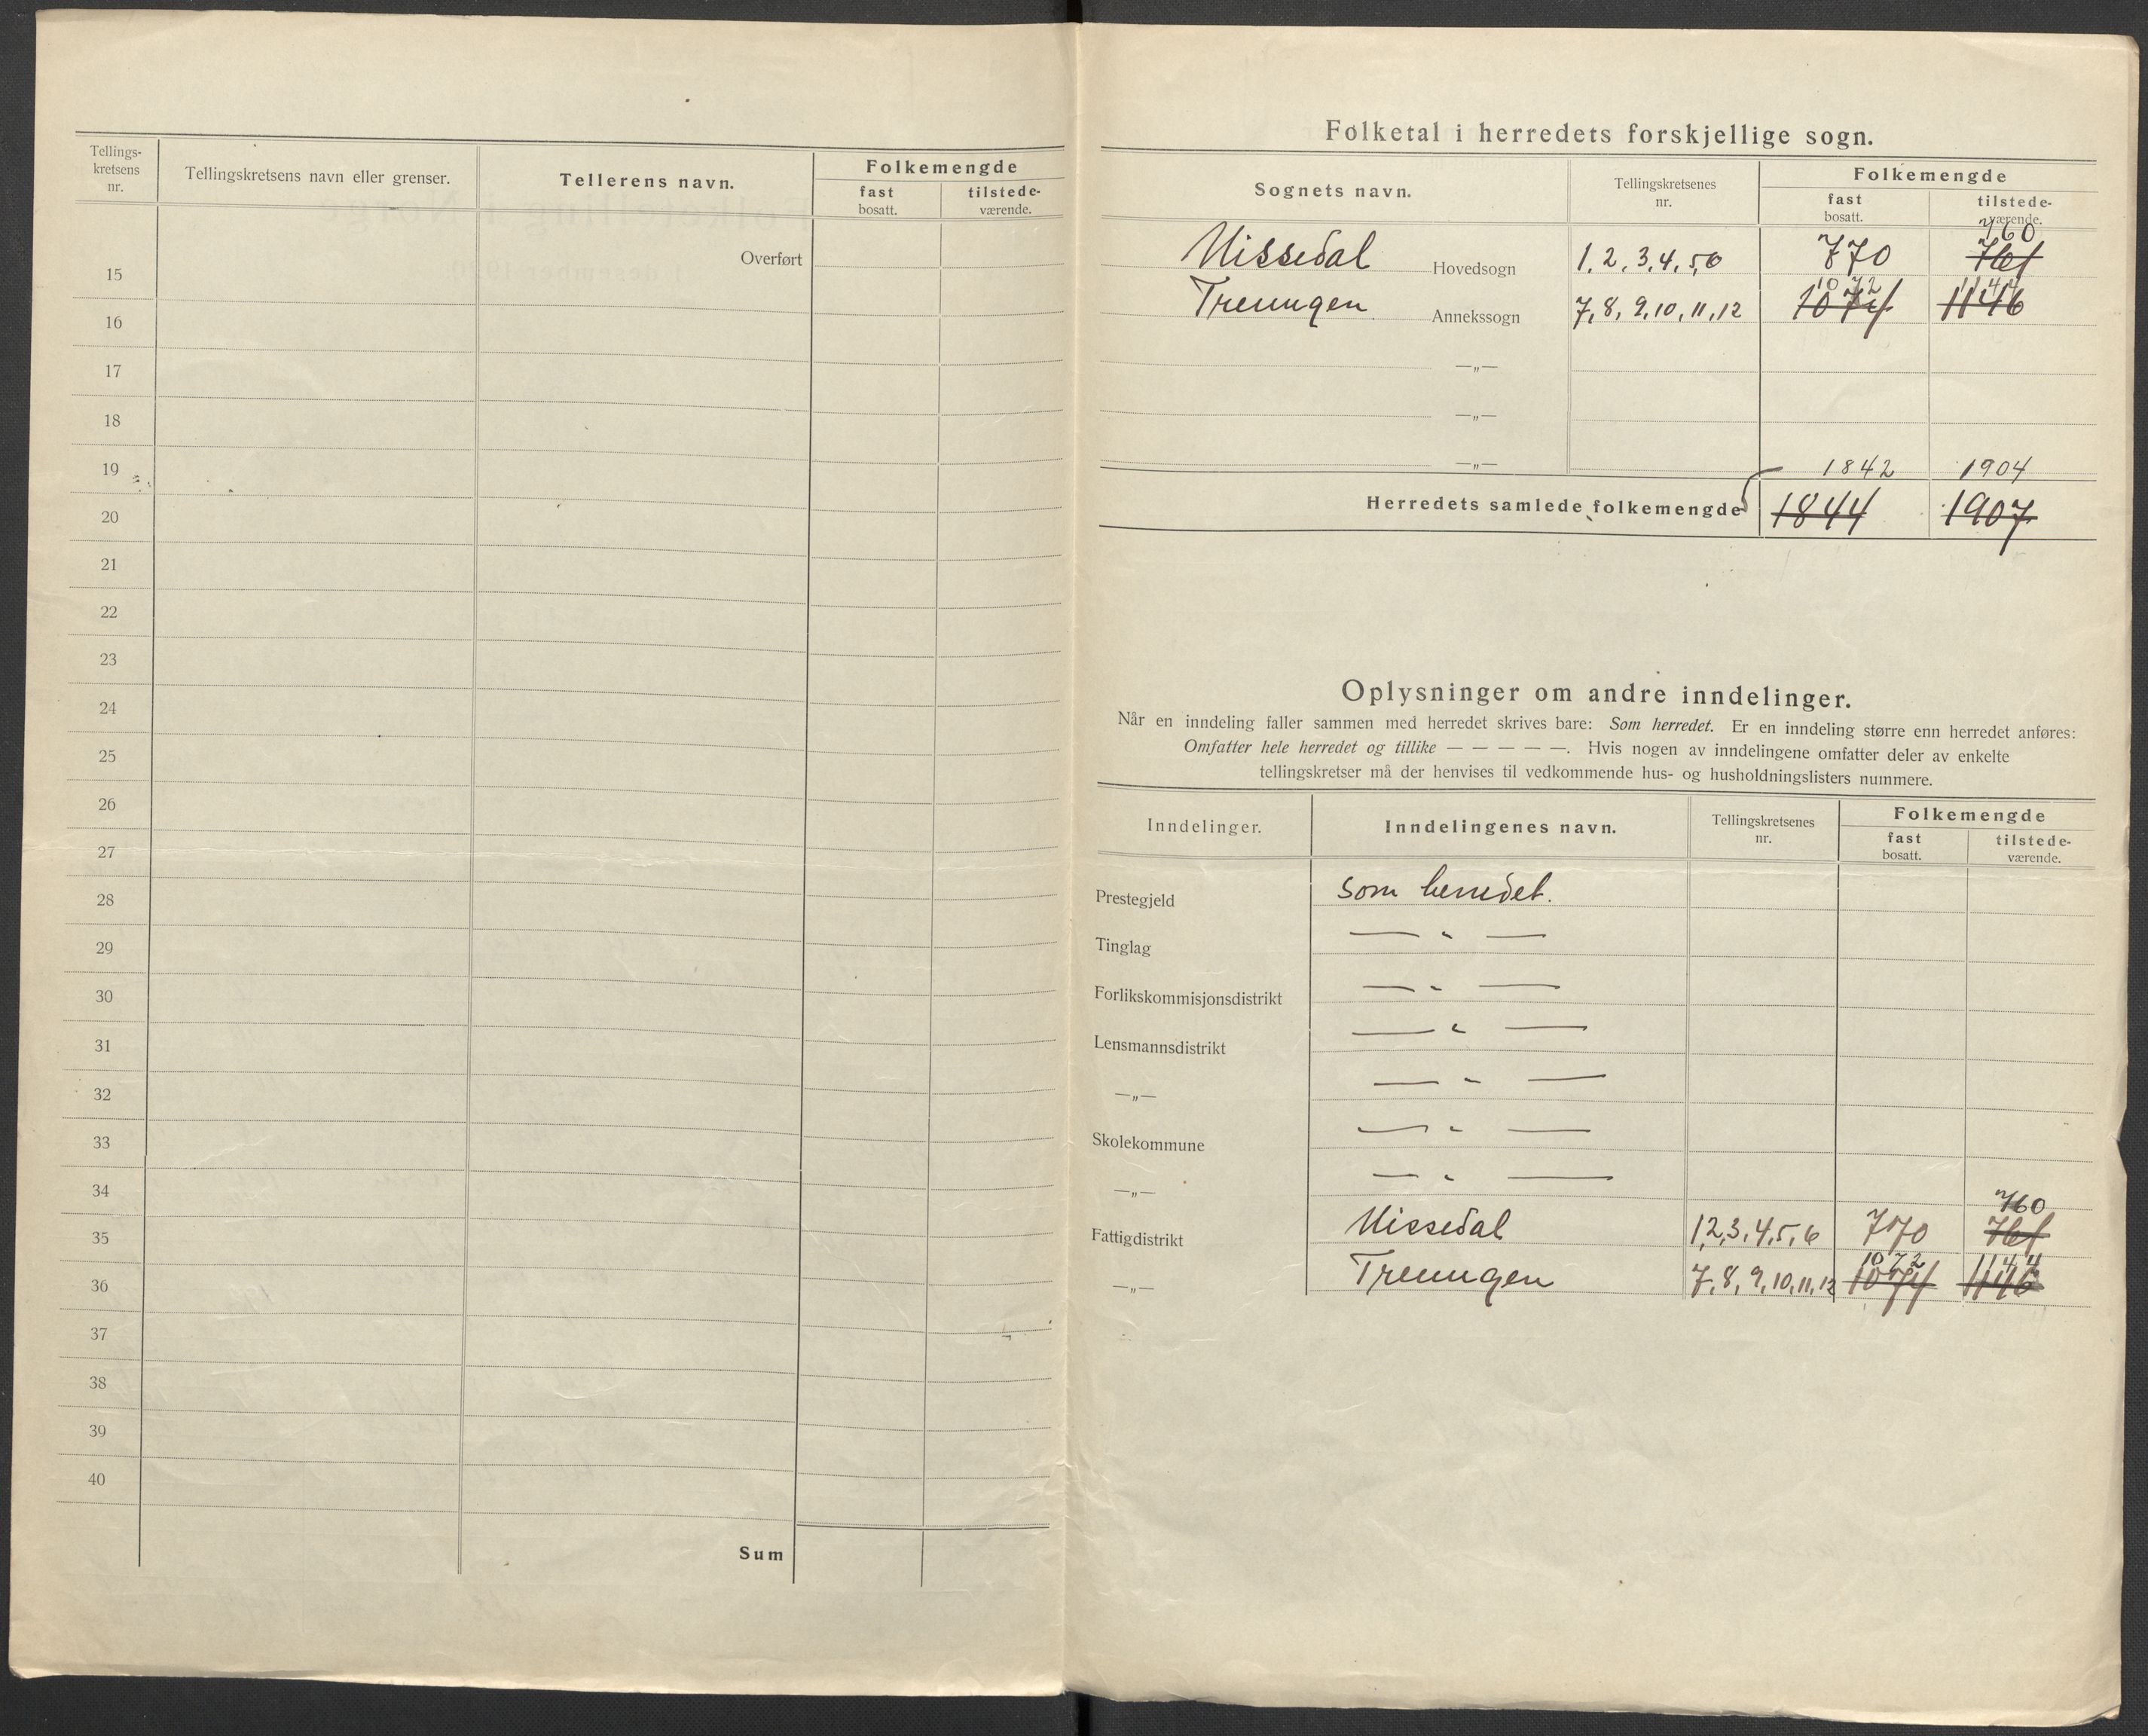 Tellings-
kretsens
nr.
Tellingskretsens navn eller grenser.
Tellerens navn.
Folkemengde
fast
bosatt.
tilstede-
værende.
Overført
15
16
17
18
19
20
21
22
23
24
25
26
27
28
29
30
31
32
33
34
35
36
37
38
39
40
Sum
Folketal i herredets forskjellige sogn.
Sognets navn.
Tellingskretsenes
nr.
Folkemengde
fast
bosatt.
tilstede-
værende.
760
Nissedal Hovedsogn 1, 2, 3, 4, 5, 6 770 761
1072 1144
Treungen Annekssogn 7, 8, 9, 10, 11, 12 1074 1146
—„—
—„—
—„— 1842 1904
Herredets samlede folkemengde 1844 1907
Oplysninger om andre inndelinger.
Når en inndeling faller sammen med herredet skrives bare: Som herredet. Er en inndeling større enn herredet anføres:
Omfatter hele herredet og tillike — — — — —. Hvis nogen av inndelingene omfatter deler av enkelte
tellingskretser må der henvises til vedkommende hus- og husholdningslisters nummere.
Inndelinger.
Inndelingenes navn.
Tellingskretsenes
nr.
Folkemengde
fast
bosatt.
tilstede-
værende.
Prestegjeld som herredet.
Tinglag — „ —
Forlikskommisjonsdistrikt — „ —
Lensmannsdistrikt — „ —
—„— — „ —
Skolekommune — „ —
—„— — „ —
760
Fattigdistrikt Nissedal 1, 2, 3, 4, 5, 6 770 761
1072 1144
—„— Treungen 7, 8, 9, 10, 11, 12 1074 1146